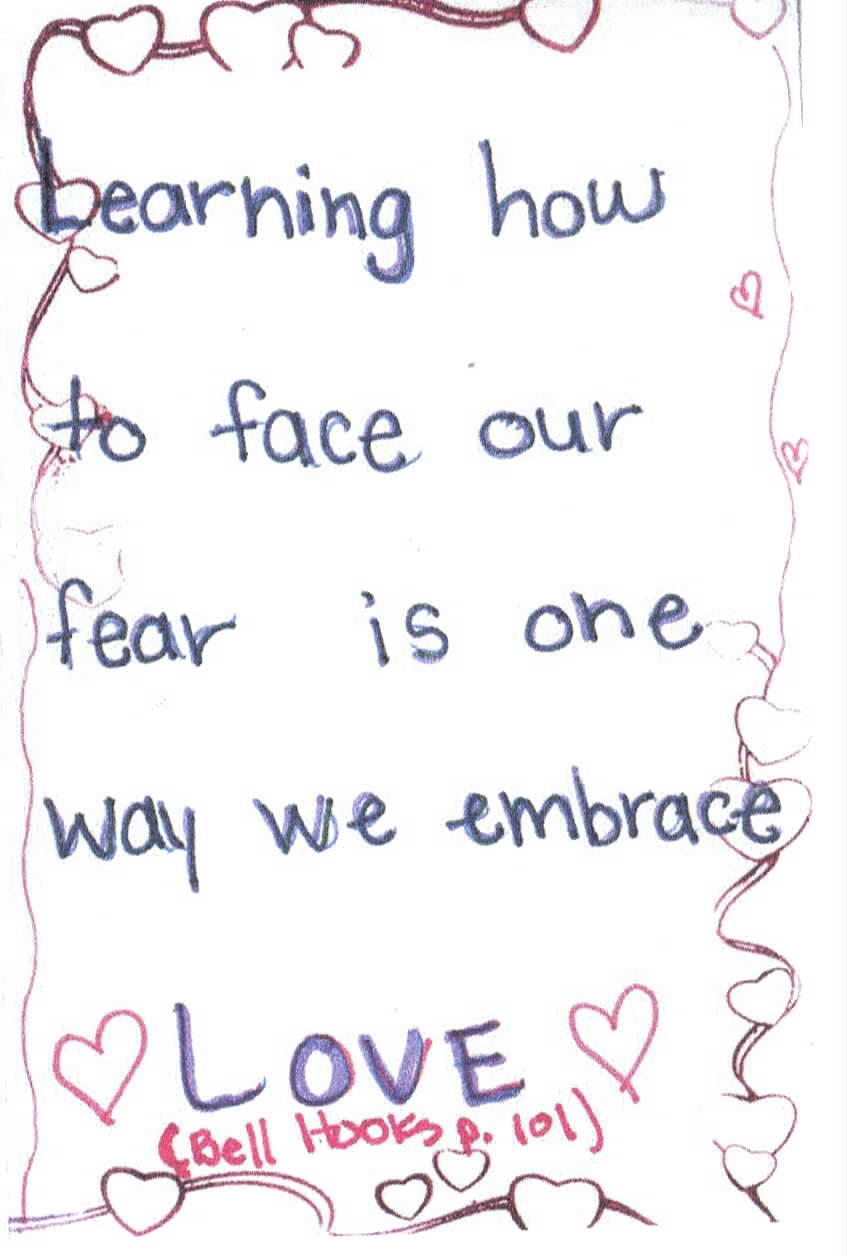 Learning how
to face our
fear is one
way we embrace
LOVE
(Bell Hooks p. 101)